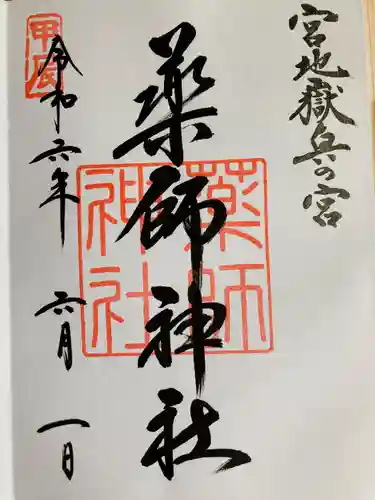 宮地嶽奥の宮
薬師神社
薬師神社
令和六年 六月 一日
甲辰